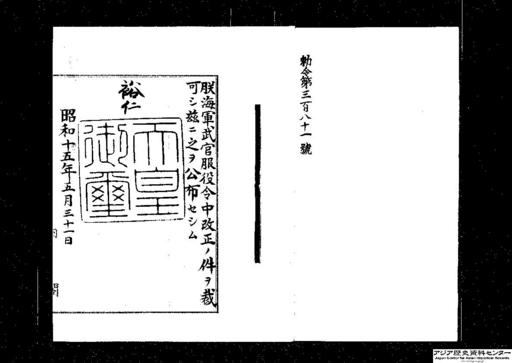 勅令第三百八十一號
朕海軍武官服役令中改正ノ件ヲ裁
可シ茲ニ之ヲ公布セシム
裕仁
天皇
御璽
昭和十五年五月三十一日
内
閣
アジア歴史資料センター
Japan Center for Asian Historical Records